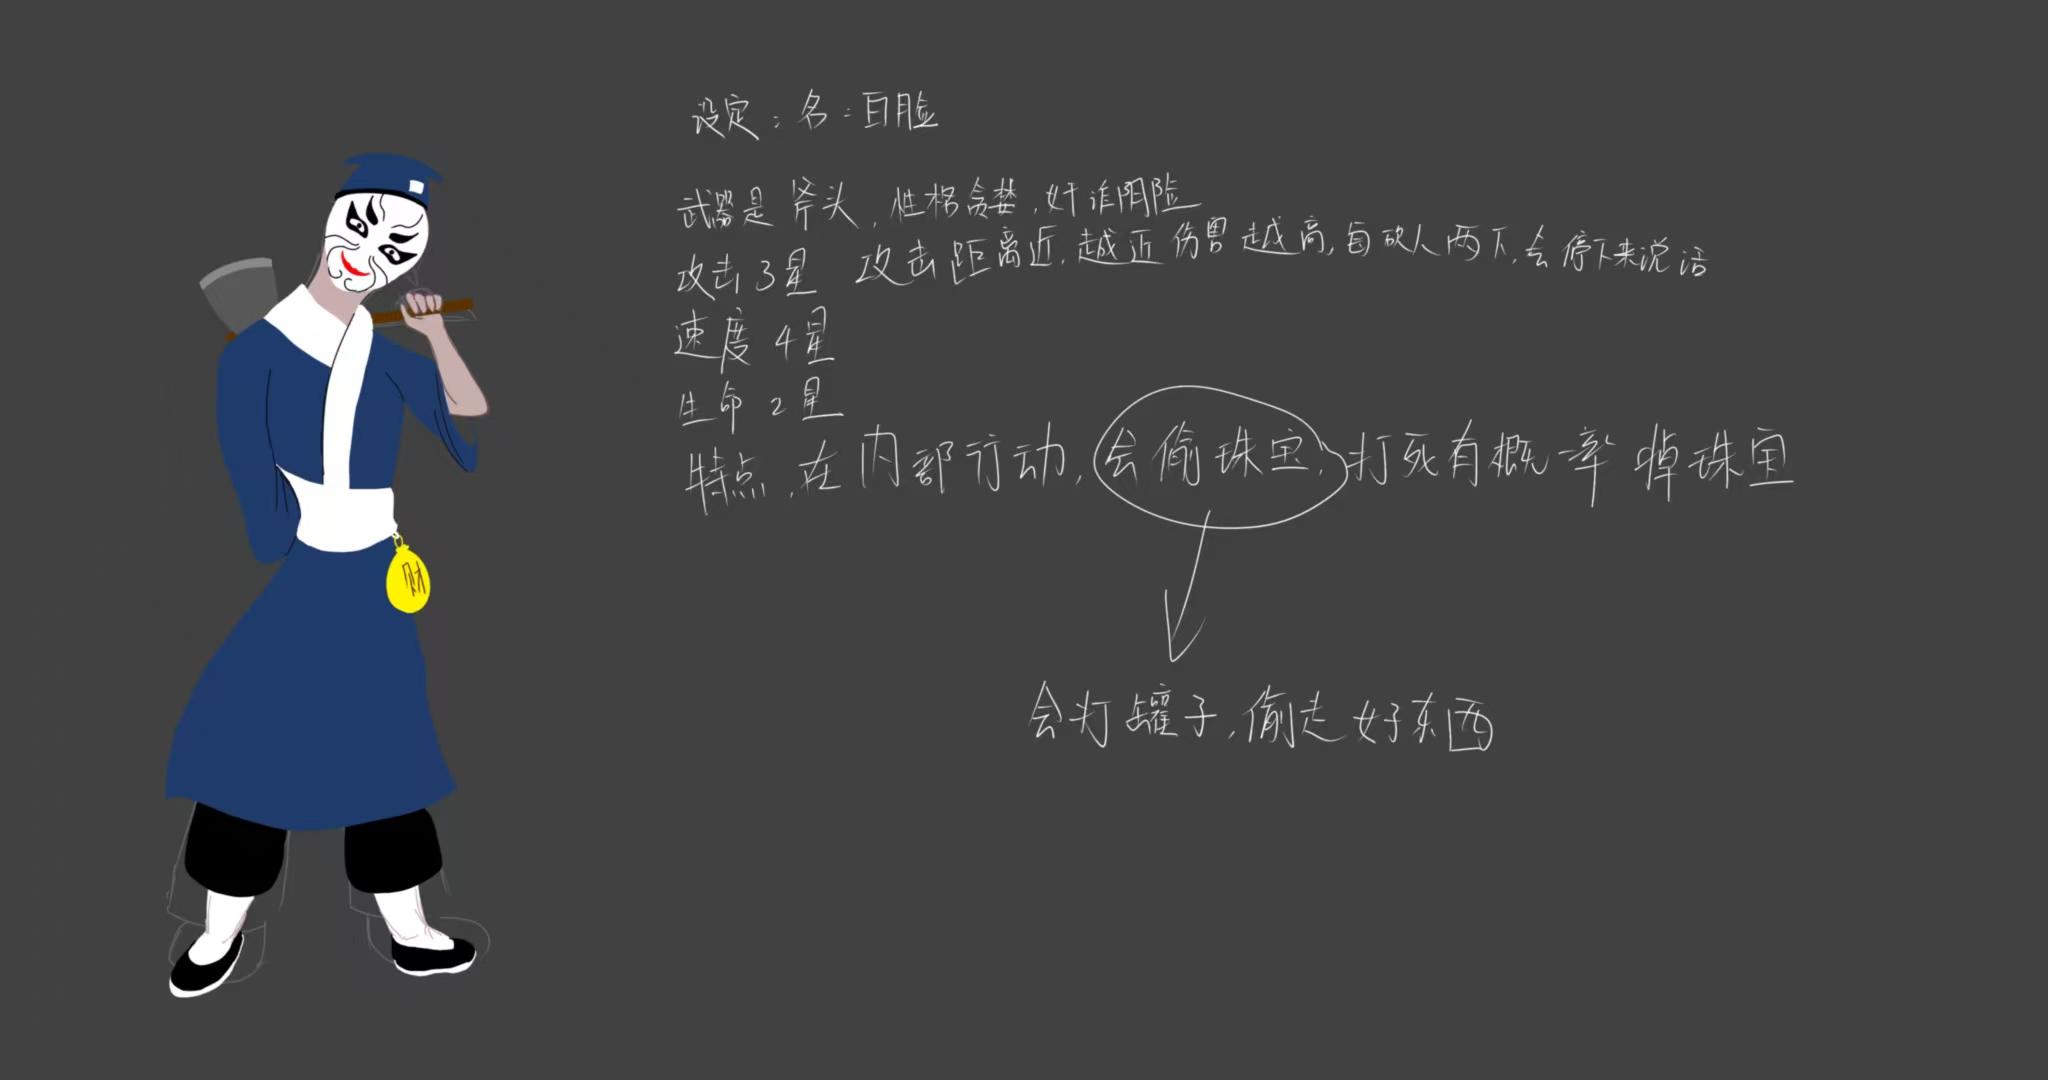 设定：名：白脸
武器是斧头，性格贪婪，奸诈阴险
攻击3星 攻击距离近，越近伤害越高，每砍人两下，会停下来说话
速度4星
生命2星
特点，在内部行动，会偷珠宝，打死有概率掉珠宝
财
会打罐子，偷走好东西